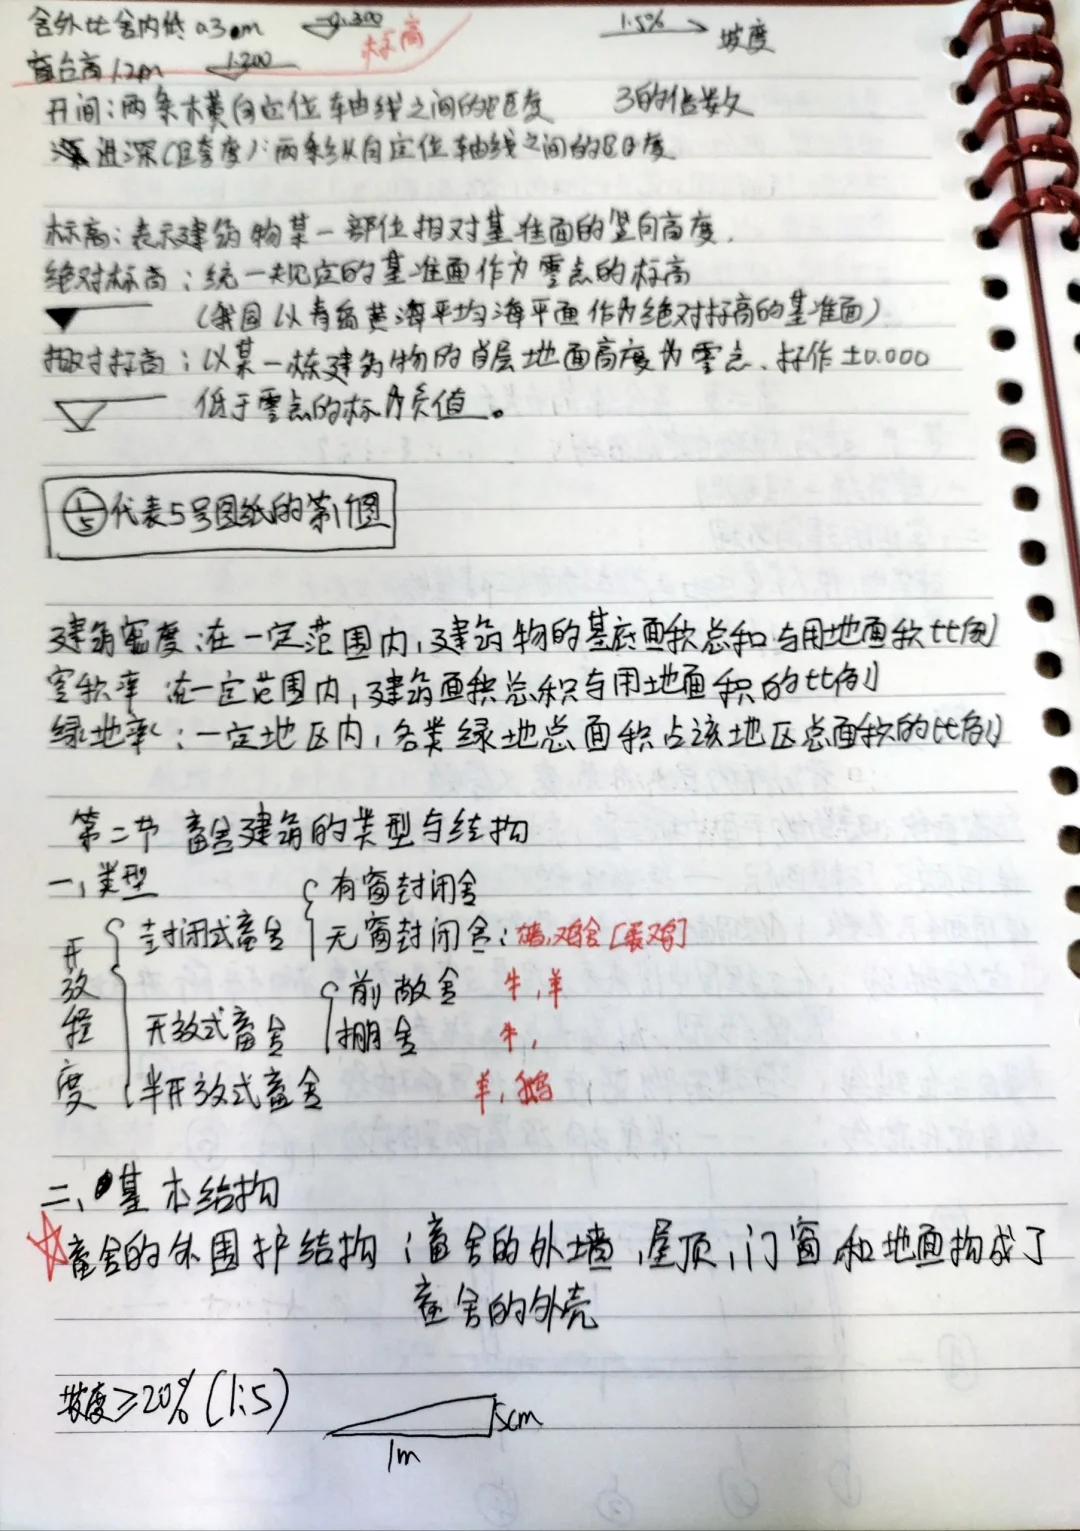 舍外比舍内低0.30m -0.300 标高 1.5% 坡度
窗台高1.2m 1.200
开间:两条横向定位轴线之间的距离 3的倍数
进深(跨度):两条纵向定位轴线之间的距离
标高:表示建筑物某一部位相对基准面的竖向高度.
绝对标高:统一规定的基准面作为零点的标高
(我国以青岛黄海平均海平面作为绝对标高的基准面)
相对标高:以某一栋建筑物的首层地面高度为零点.标作±0.000
低于零点的标为负值。
1/5 代表5号图纸的第1个图
建筑密度:在一定范围内,建筑物的基底面积总和与用地面积比例
容积率 在一定范围内,建筑面积总积与用地面积的比例
绿地率:一定地区内,各类绿地总面积占该地区总面积的比例
第二节 畜舍建筑的类型与结构
一、类型
开放程度
有窗封闭舍
封闭式畜舍 无窗封闭舍: 鸡舍[蛋鸡]
前敞舍 牛,羊
开放式畜舍 棚舍 牛,
半开放式畜舍 羊,鹅
二、基本结构
☆畜舍的外围护结构:畜舍的外墙、屋顶、门窗和地面构成了
畜舍的外壳
坡度≥20%(1:5) 5cm
1m